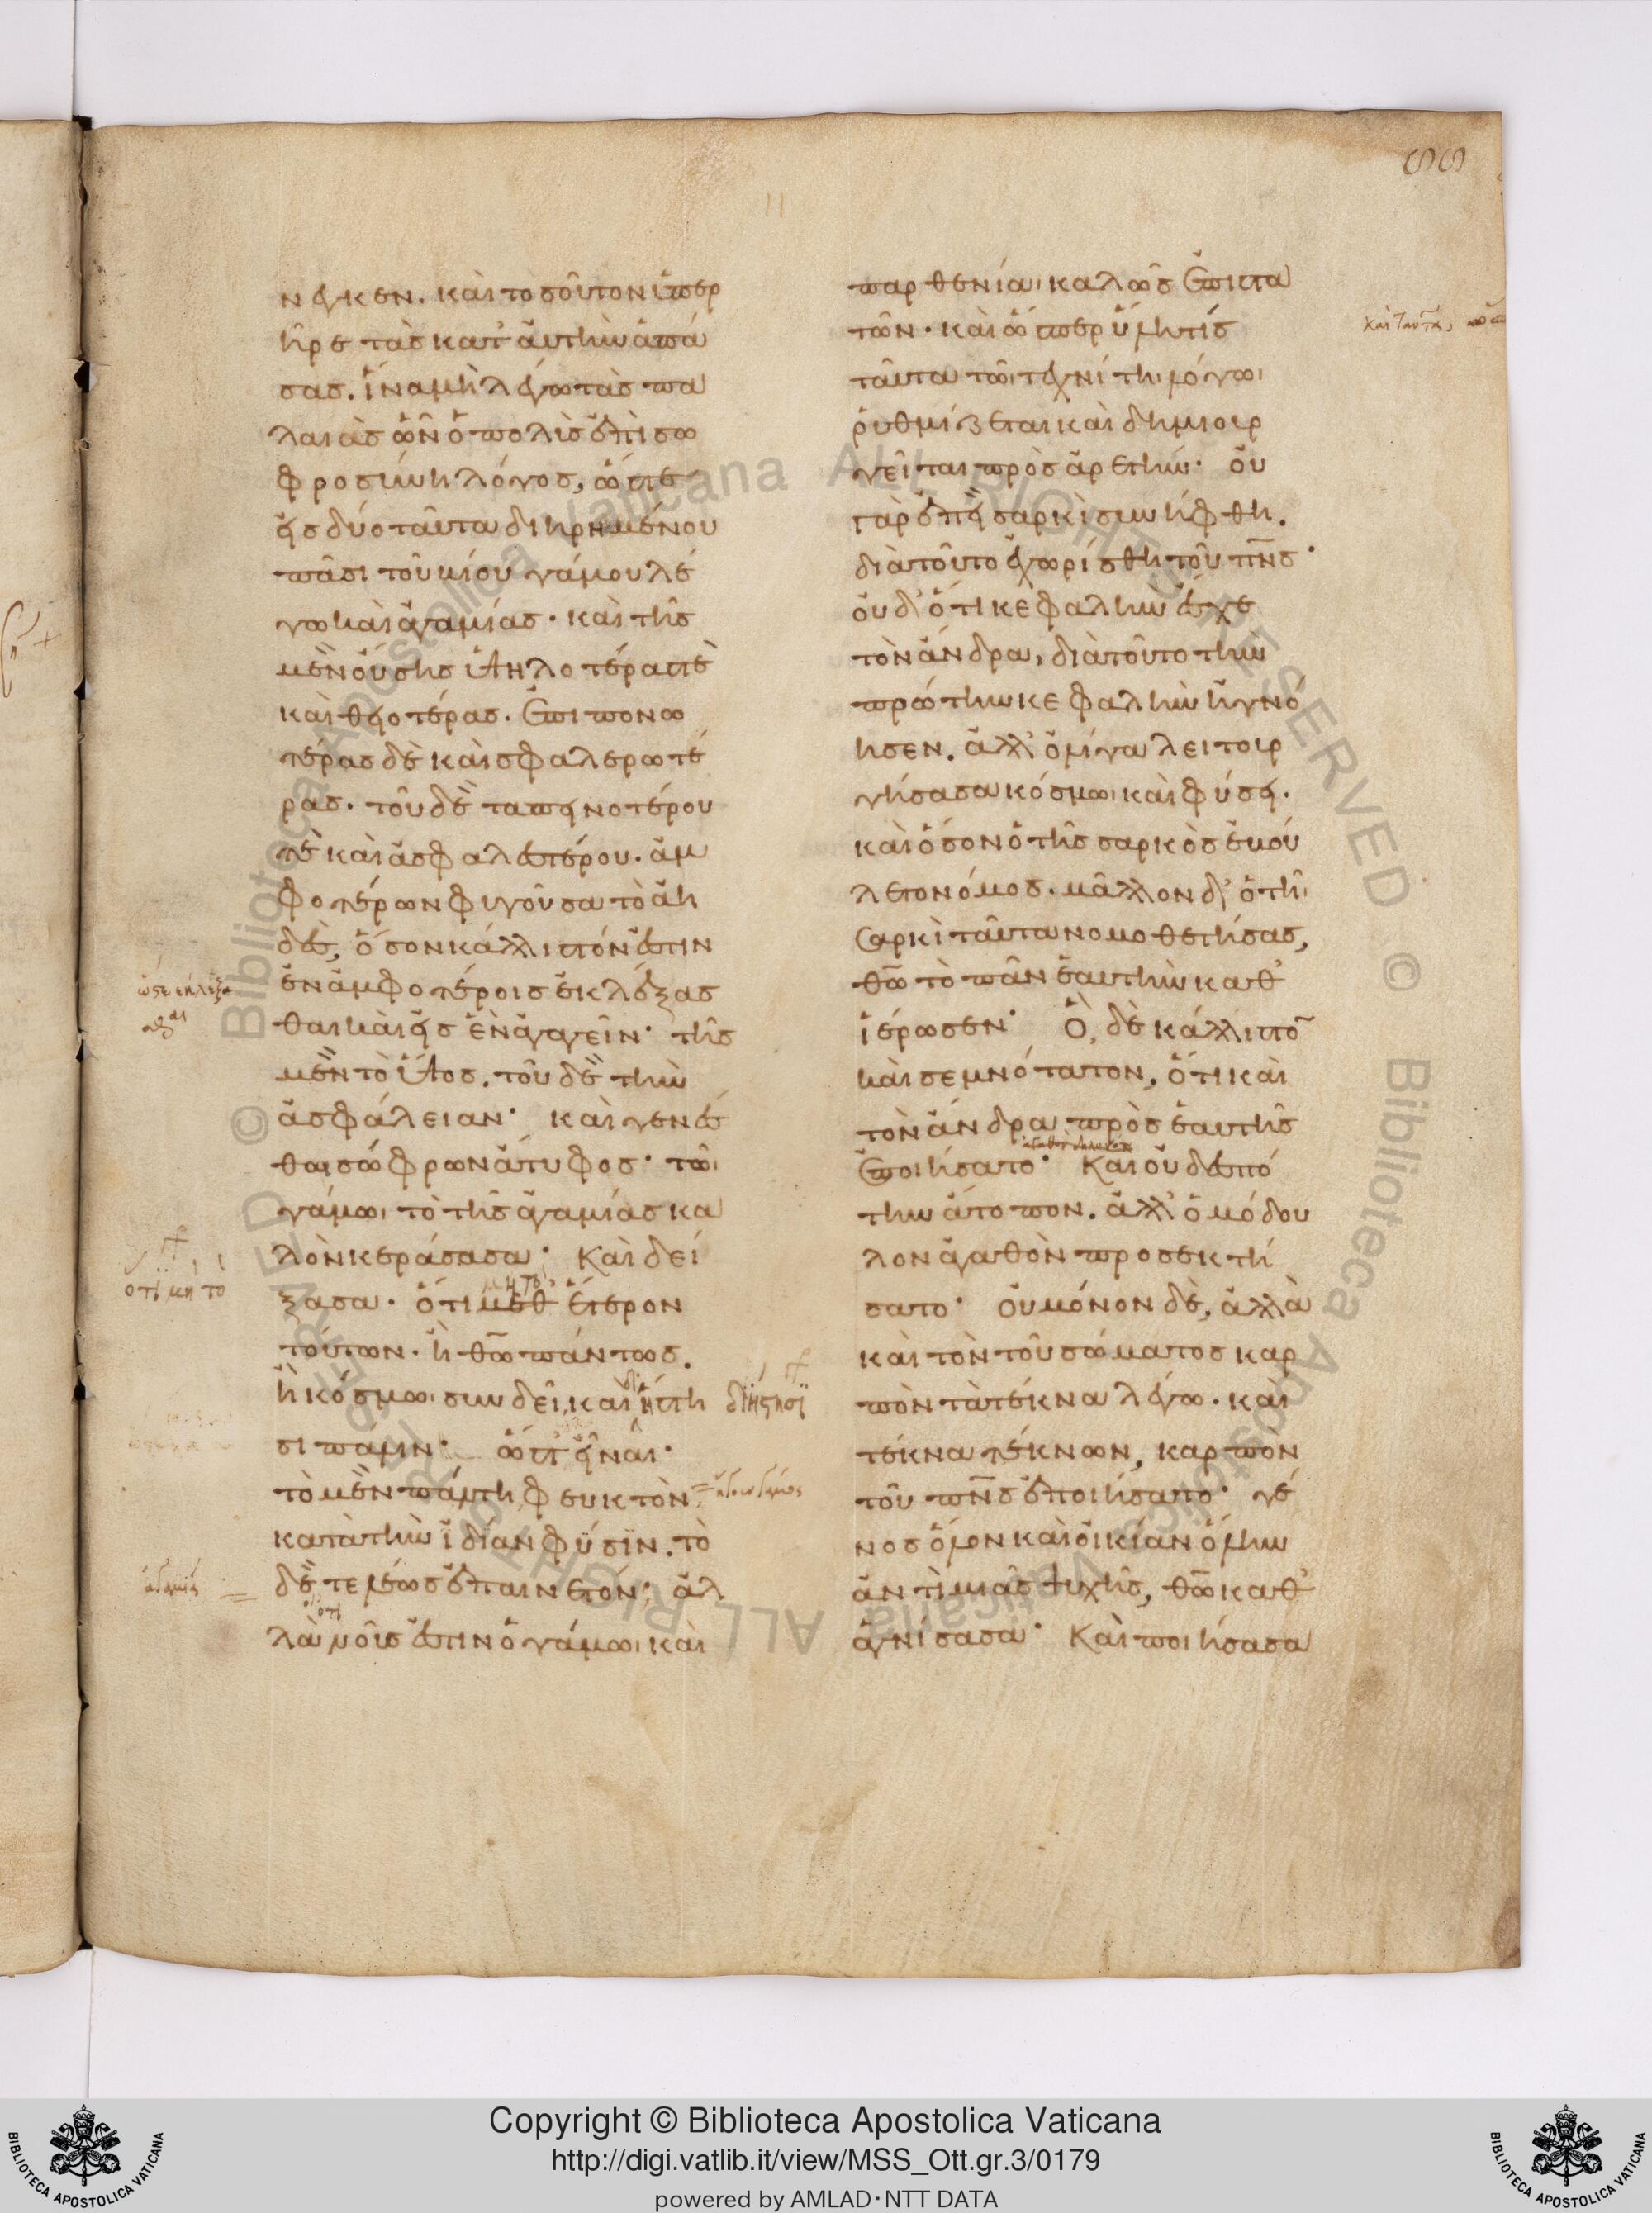 66
11
νεγκεν. καὶ τοσοῦτον ὑπερ
ῆρε τὰς κατ' αὐτὴν ἁπά
σας. ἵνα μὴ λέγω τὰς πα
λαιὰς ὧν ὁ πολὺς ἐπὶ σω
φροσύνη λόγος, ὥστε
εἰς δύο ταῦτα διηρημένου
πᾶσι τοῦ βίου γάμου λέ
γω καὶ ἀγαμίας. καὶ τῆς
μὲν οὔσης ὑψηλοτέρας τὲ
καὶ θειοτέρας. ἐπιπονω
τέρας δὲ καὶ σφαλερωτέ
ρας. τοῦ δὲ ταπεινοτέρου
τὲ καὶ ἀσφαλεστέρου. ἀμ
φοτέρων φυγοῦσα τὸ ἀη
δὲς, ὅσον κάλλιστόν ἐστιν
ἐν ἀμφοτέροις ἐκλέξας
θαι καὶ εἰς ἓν ἀγαγεῖν· τῆς
μὲν τὸ ὕψος. τοῦ δὲ τὴν
ἀσφάλειαν· καὶ γενέσ
θαι σώφρων ἄτυφος· τῶι
γάμωι τὸ τῆς ἀγαμίας κα
λὸν κεράσασα· Καὶ δεί
ξασα. ὅτι μεθ' ἕτερον
τούτων. ἢ θῶ πάντως.
ἢ κόσμωι συνδεῖ καὶ
σι πάλιν· ὥστ' εἶναι·
τὸ μὲν πάντη φευκτὸν
κατὰ τὴν ἰδίαν φύσιν. τὸ
δὲ τελέως ἐπαινετόν· ἀλ
λὰ νοῦς ἐστιν ὁ γάμωι καὶ
ὅτι μὴ τὸ
παρθενίαι καλῶς ἐπιστα
τῶν. καὶ ὥσπερ ὕλη τίς
ταῦτα τῶι τεχνίτηι λόγωι
ῥυθμίζεται καὶ δημιουρ
γεῖται πρὸς ἀρετήν· οὐ
γὰρ ἐπεὶ σαρκὶ συνήφθη.
διὰ τοῦτο ἐχωρίσθη τοῦ πνς·
οὐδ' ὅτι κεφαλὴν ἔσχε
τὸν ἄνδρα, διὰ τοῦτο τὴν
πρώτην κεφαλὴν ἠγνό
ησεν. ἀλλ' ὀλίγα λειτουρ
γήσασα κόσμωι καὶ φύσει.
καὶ ὅσον ὁ τῆς σαρκὸς ἐβού
λετο νόμος. μᾶλλον δ' ὁ τῆι
σαρκὶ ταῦτα νομοθετήσας,
θῶ τὸ πᾶν ἑαυτὴν καθ
ιέρωσεν· Ὃ, δὲ κάλλιστο
καὶ σεμνότατον, ὅτι καὶ
τὸν ἄνδρα πρὸς ἑαυτῆς
ἐποιήσατο· Καὶ οὐ δεσπό
την ἄτοπον. ἀλλ' ὁμόδου
λον ἀγαθὸν προσεκτή
σατο· οὐ μόνον δὲ, ἀλλὰ
καὶ τὸν τοῦ σώματος καρ
πὸν τὰ τέκνα λέγω. καὶ
τέκνα τέκνων, καρπὸν
τοῦ πνς ἐποιήσατο· γέ
νος ὅλον καὶ οἰκίαν ὅλην
ἀντὶ μιᾶς ψυχῆς, θῶ καθ'
αγνίσασα· Καὶ ποιήσασα
Copyright © Biblioteca Apostolica Vaticana
http://digi.vatlib.it/view/MSS_Ott.gr.3/0179
powered by AMLAD·NTT DATA
BIBLIOTECA APOSTOLICA VATICANA
BIBLIOTECA APOSTOLICA VATICANA